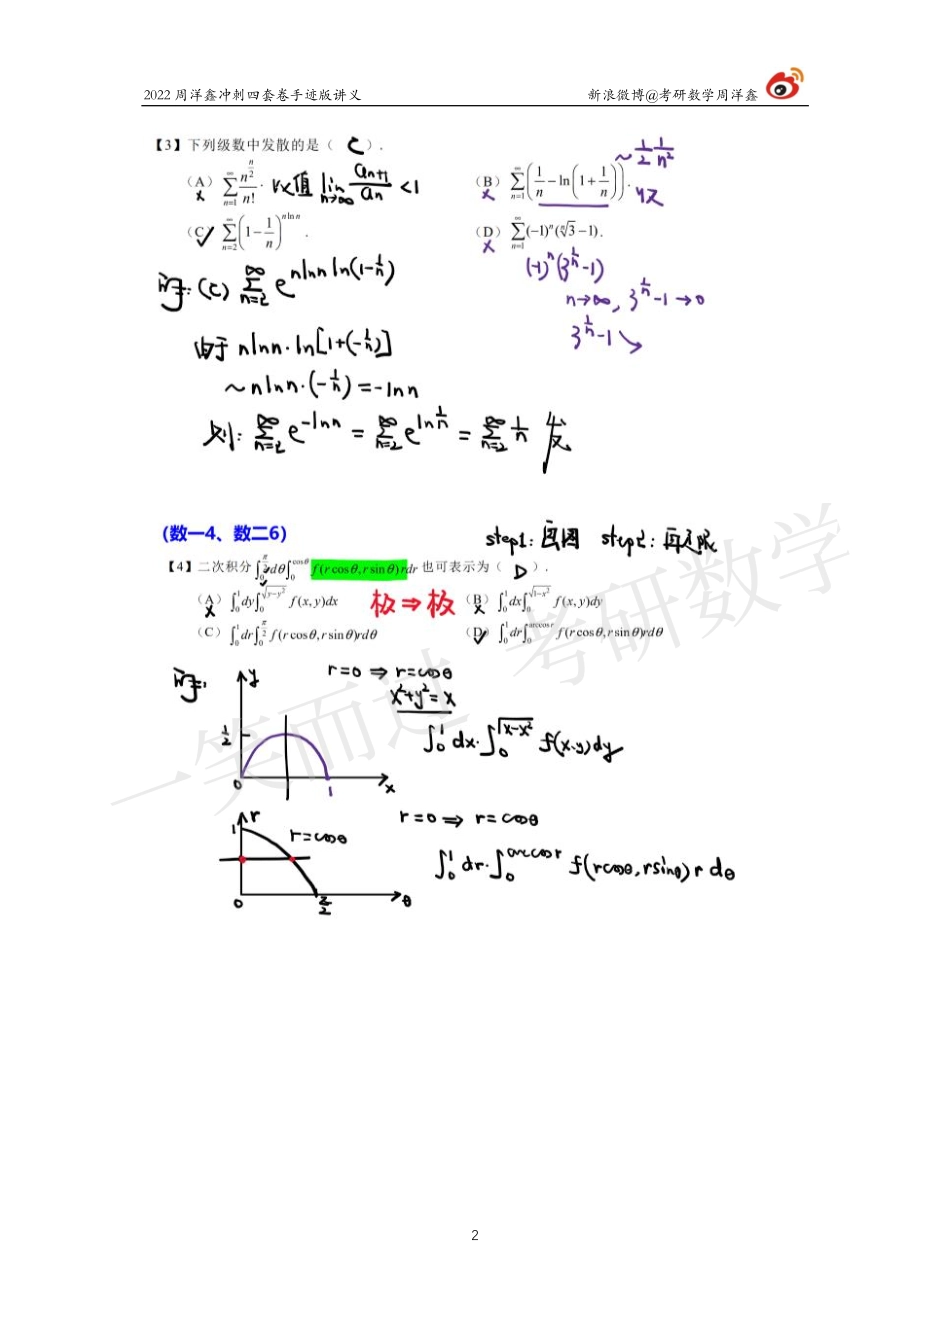 2022 周洋鑫冲刺四套卷手迹版讲义 新浪微博@考研数学周洋鑫
【3】下列级数中发散的是（ C ）.
（A）∑_{n=1}^{∞} n^{n/2}/n! . 收 比值 lim_{n→∞} a_{n+1}/a_n <1 （B）∑_{n=1}^{∞}(1/n - ln(1+1/n)). ~ 1/2 1/n² 收
（C）∑_{n=2}^{∞}(1-1/n)^{n ln n} . （D）∑_{n=1}^{∞}(-1)^n(ⁿ√3-1).
(-1)^n(3^{1/n}-1)
n→∞, 3^{1/n}-1→0
3^{1/n}-1↘
解: (C) ∑_{n=2}^{∞} e^{n ln n ln(1-1/n)}
由于 n ln n·ln[1+(-1/n)]
~ n ln n·(-1/n) = -ln n
则: ∑_{n=2}^{∞} e^{-ln n} = ∑_{n=2}^{∞} e^{ln 1/n} = ∑_{n=2}^{∞} 1/n 发
(数一4、数二6)
step1: 画图 step2: 再定限
【4】二次积分 ∫_0^{π/2}dθ∫_0^{cosθ} f(r cosθ, r sinθ)rdr 也可表示为（ D ）.
（A）∫_0^1 dy∫_0^{√(y-y²)} f(x,y)dx 极⇒极 （B）∫_0^1 dx∫_0^{√(1-x²)} f(x,y)dy
（C）∫_0^1 dr∫_0^{π/2} f(r cosθ, r sinθ)rdθ （D）∫_0^1 dr∫_0^{arccos r} f(r cosθ, r sinθ)rdθ
解: y r=0 ⇒ r=cosθ
x²+y²=x
1/2 ∫_0^1 dx·∫_0^{√(x-x²)} f(x,y)dy
0 1 x
r r=0 ⇒ r=cosθ
1 r=cosθ
∫_0^1 dr·∫_0^{arccos r} f(rcosθ, rsinθ) r dθ
0 π/2 θ
一笑而过 考研数学
2